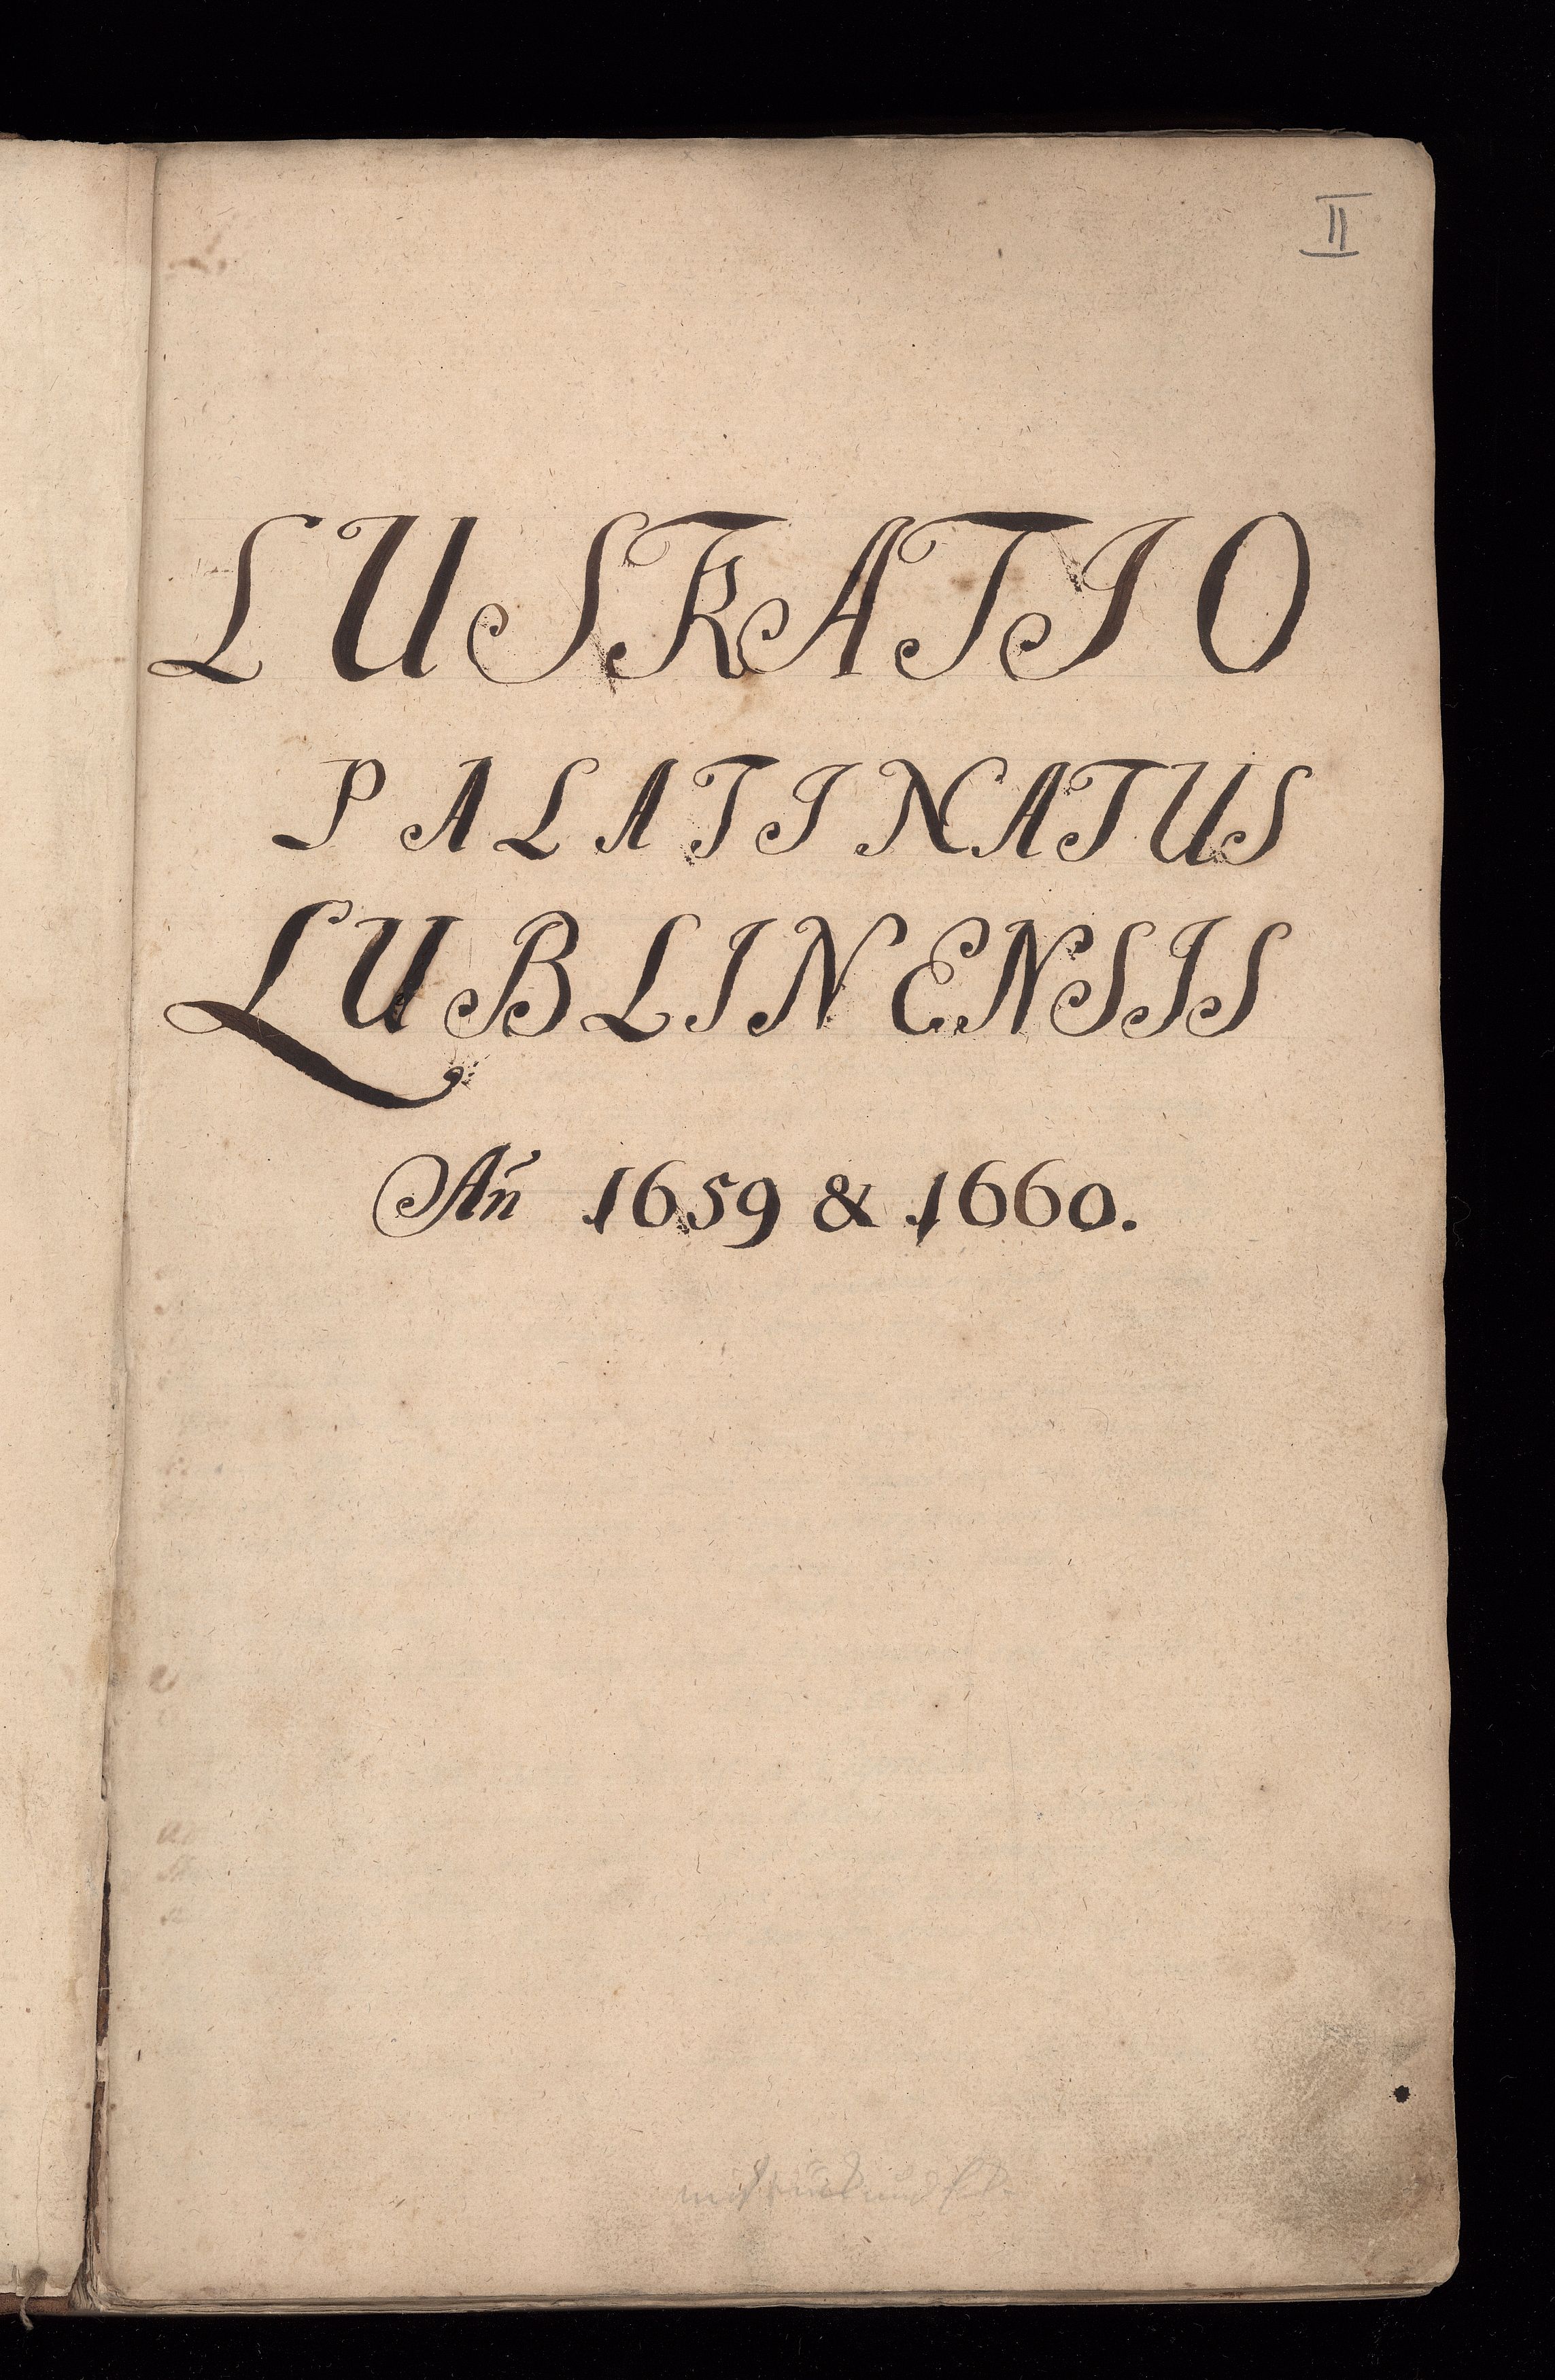 II
LUSRATIO
PALATINATUS
LUBLINENSIS
Añ 1659 & 1660.